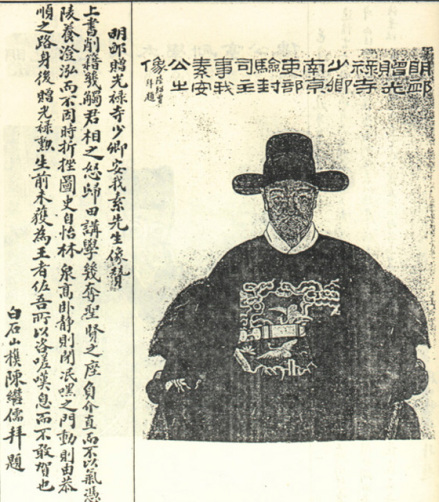 明卹
贈光
祿寺
少卿
南京
吏部
驗封
司主
事我
素安
公之
像
拜題
明卹贈光祿寺少卿安我素先生像贊
上書削籍幾觸君相之怒歸田講學競奪聖賢之座負介直而不以氣憑
陵養澄泓而不因時折挫圖史自怡林泉高臥靜則閉泯嘿之門動則由恭
順之路身後贈光祿勲生前未獲為王者佐吾所以嗟嘆息而不敢智也
白石山樵陳繼儒拜題